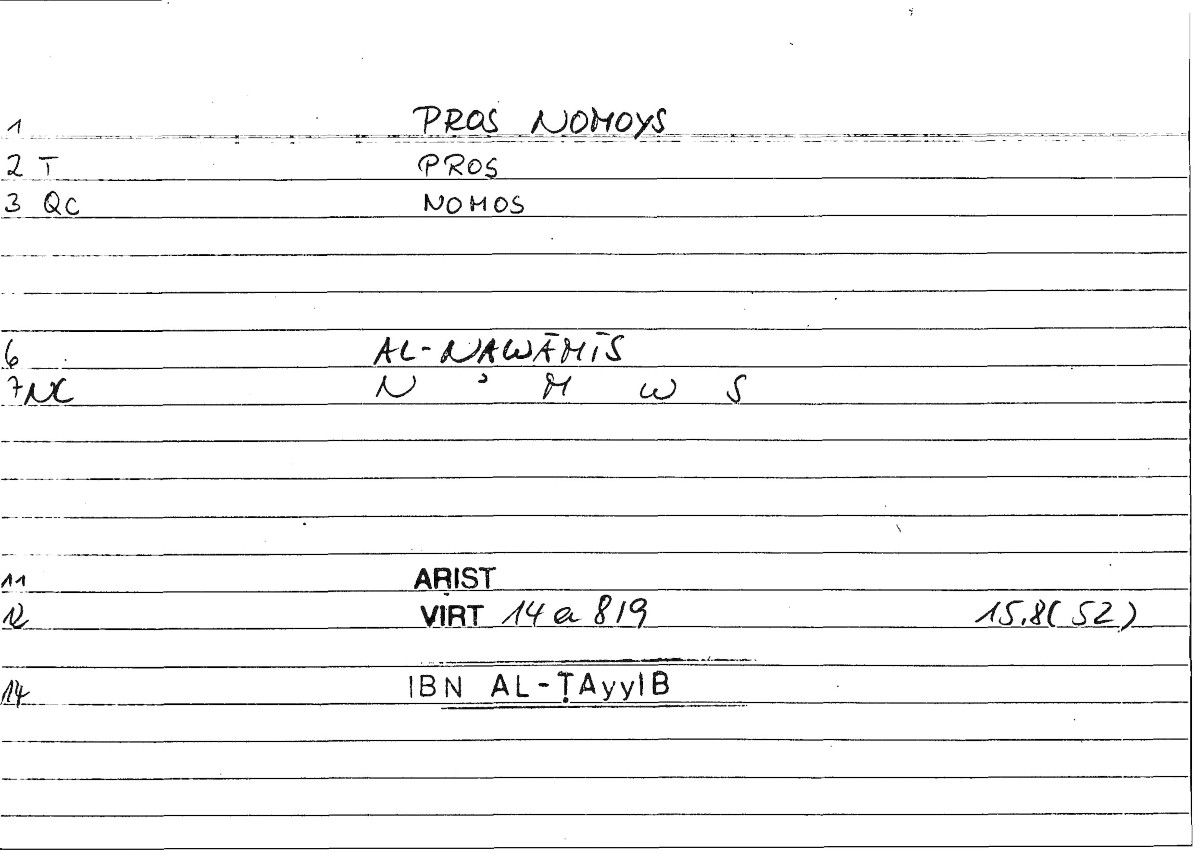 1 PROS NOMOYS
2 T PROS
3 QC NOMOS
6 AL-NAWĀMĪS
7 NC N ʾ M W S
11 ARIST
12 VIRT 14 a 8/9 15.8(52)
14 IBN AL-ṬAyyIB